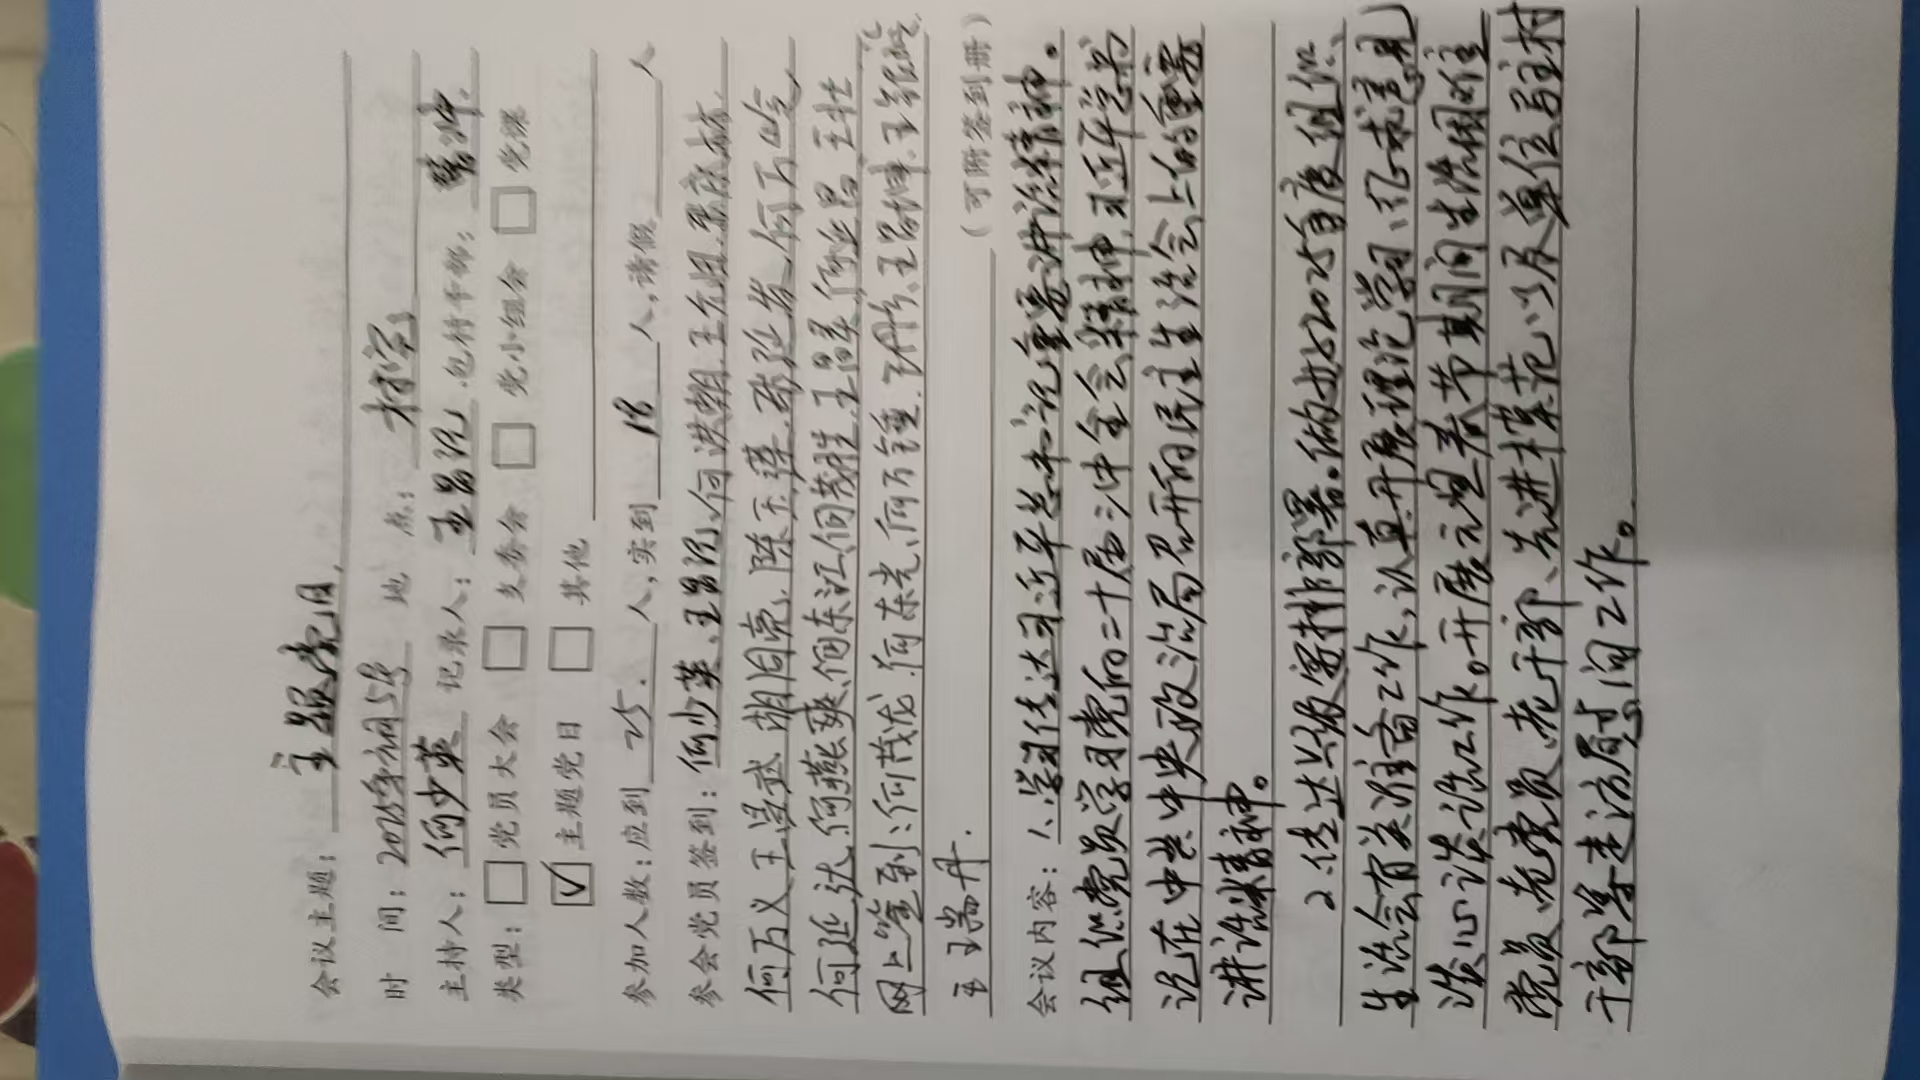 会议主题：主题党日.
时 间：2025年1月5号 地 点：村室
主持人：何少英 记录人：王昌锐 包村干部：
类型：□党员大会 □支委会 □党小组会 □党课
☑主题党日 □其他
参加人数：应到 25 人，实到 18 人，请假 人
参会党员签到：何少英、王昌锐、何洪朝、王允恒、
何万义、王岩武、胡同亮、陈玉、张延发、何万
何延达、何燕爽、何东江、何茂胜、王昌、何业昌、王壮
网上签到：何茂龙、何东光、何万锺、
王瑞丹.
（可附签到册）
会议内容：1、学习传达习近平总书记重要讲话精神。
组织党员学习党的二十届三中全会精神，习近平总书
记在中共中央政治局召开的民主生活会上的重要
讲话精神。
2、传达上级安排部署。做好2025首度组织
生活会有关准备工作，认真开展理论学习、征求意见
谈心谈话工作。开展元旦春节期间生活困难
党员、老党员、老干部、先进模范以及单位驻村
干部等走访慰问工作。